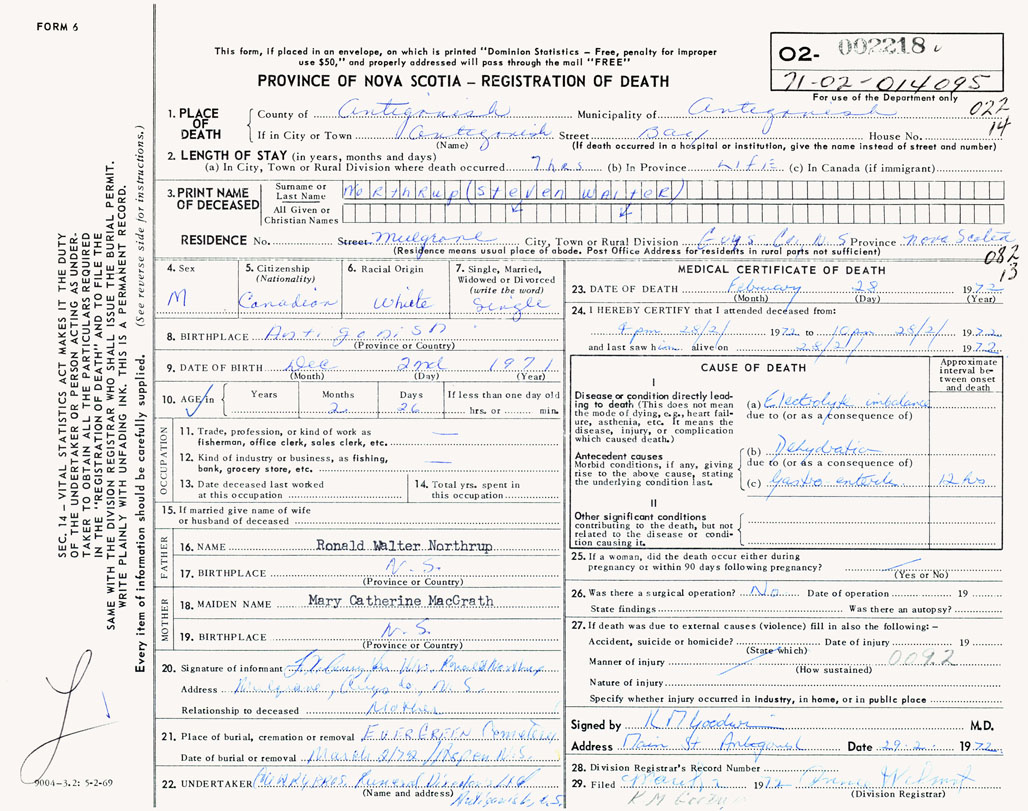 FORM 6
This form, if placed in an envelope, on which is printed "Dominion Statistics – Free, penalty for improper
use $50," and properly addressed will pass through the mail "FREE"
PROVINCE OF NOVA SCOTIA – REGISTRATION OF DEATH
02- 002218
71-02-014095
For use of the Department only
022
14
1. PLACE OF DEATH
County of Antigonish Municipality of Antigonish
If in City or Town Antigonish Street Bay House No.
(Name) (If death occurred in a hospital or institution, give the name instead of street and number)
2. LENGTH OF STAY (in years, months and days)
(a) In City, Town or Rural Division where death occurred 7 hrs (b) In Province Life (c) In Canada (if immigrant)
3. PRINT NAME OF DECEASED
Surname or Last Name Northrup (Steven Walter)
All Given or Christian Names
RESIDENCE No. Street Mulgrave City, Town or Rural Division Guys Co, N S Province Nova Scotia
(Residence means usual place of abode. Post Office Address for residents in rural parts not sufficient)
082
13
4. Sex
M
5. Citizenship
(Nationality)
Canadian
6. Racial Origin
White
7. Single, Married,
Widowed or Divorced
(write the word)
Single
8. BIRTHPLACE Antigonish
(Province or Country)
9. DATE OF BIRTH Dec 2nd 1971
(Month) (Day) (Year)
10. AGE in Years Months Days If less than one day old
2 26 hrs. or min.
OCCUPATION
11. Trade, profession, or kind of work as
fisherman, office clerk, sales clerk, etc. —
12. Kind of industry or business, as fishing,
bank, grocery store, etc. —
13. Date deceased last worked
at this occupation
14. Total yrs. spent in
this occupation
15. If married give name of wife
or husband of deceased
FATHER
16. NAME Ronald Walter Northrup
17. BIRTHPLACE N.S.
(Province or Country)
MOTHER
18. MAIDEN NAME Mary Catherine MacGrath
19. BIRTHPLACE N.S.
(Province or Country)
20. Signature of informant Ronald Northrup
Address Mulgrave, Guys Co, N.S.
Relationship to deceased Mother
21. Place of burial, cremation or removal EVERGREEN Cemetery
Date of burial or removal March 2/72 N.S.
22. UNDERTAKER Funeral Directors Ltd
(Name and address) Antigonish, N.S.
MEDICAL CERTIFICATE OF DEATH
23. DATE OF DEATH February 28 1972
(Month) (Day) (Year)
24. I HEREBY CERTIFY that I attended deceased from:
4 pm 28/2/ 1972 to 10 pm 28/2/ 1972
and last saw him alive on 28/2/ 1972
CAUSE OF DEATH
Approximate
interval be-
tween onset
and death
I
Disease or condition directly lead-
ing to death (This does not mean
the mode of dying, e.g., heart fail-
ure, asthenia, etc. It means the
disease, injury, or complication
which caused death.)
(a) Electrolyte imbalance
due to (or as a consequence of)
Antecedent causes
Morbid conditions, if any, giving
rise to the above cause, stating
the underlying condition last.
(b) Dehydration
due to (or as a consequence of)
(c) Gastro enteritis 12 hrs
II
Other significant conditions
contributing to the death, but not
related to the disease or condi-
tion causing it.
25. If a woman, did the death occur either during
pregnancy or within 90 days following pregnancy?
(Yes or No)
26. Was there a surgical operation? No Date of operation 19
State findings Was there an autopsy?
27. If death was due to external causes (violence) fill in also the following: –
Accident, suicide or homicide? Date of injury 19
(State which)
Manner of injury 0092
(How sustained)
Nature of injury
Specify whether injury occurred in industry, in home, or in public place
Signed by K M Goodwin M.D.
Address Main St Antigonish Date 29.2. 1972
28. Division Registrar's Record Number
29. Filed March 2 1972
(Division Registrar)
K M Goodwin
SEC. 14 – VITAL STATISTICS ACT MAKES IT THE DUTY
OF THE UNDERTAKER OR PERSON ACTING AS UNDER-
TAKER TO OBTAIN ALL THE PARTICULARS REQUIRED
IN THE "REGISTRATION OF DEATH" AND TO FILE THE
SAME WITH THE DIVISION REGISTRAR WHO SHALL ISSUE THE BURIAL PERMIT.
WRITE PLAINLY WITH UNFADING INK. THIS IS A PERMANENT RECORD.
Every item of information should be carefully supplied. (See reverse side for instructions.)
9004-3.2: 5-2-69